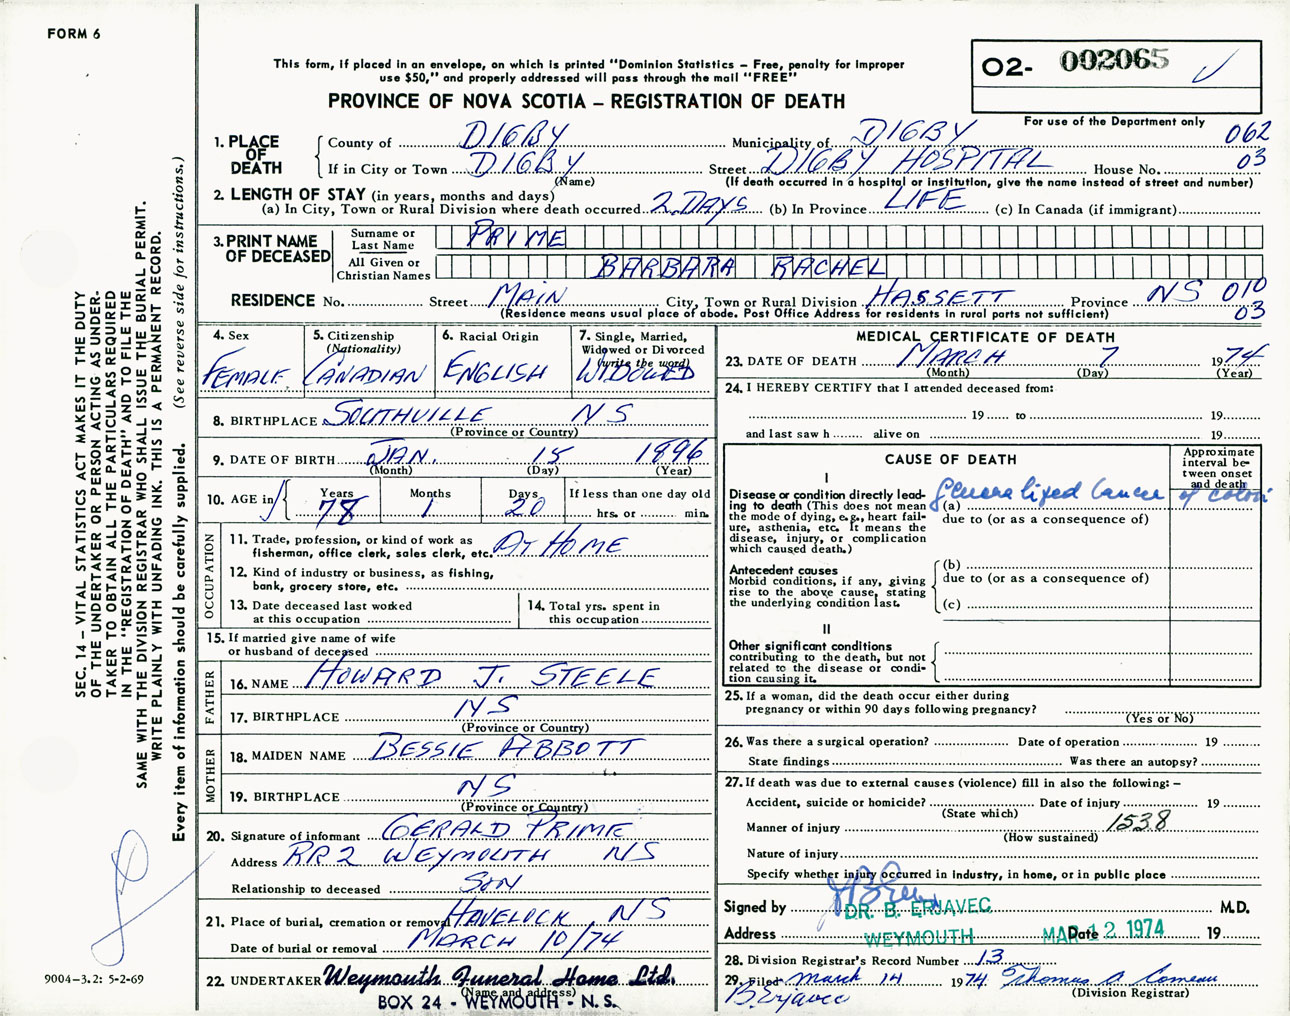 FORM 6
This form, if placed in an envelope, on which is printed "Dominion Statistics – Free, penalty for improper
use $50," and properly addressed will pass through the mail "FREE"
PROVINCE OF NOVA SCOTIA – REGISTRATION OF DEATH
O2- 002065
For use of the Department only
SEC. 14 – VITAL STATISTICS ACT MAKES IT THE DUTY
OF THE UNDERTAKER OR PERSON ACTING AS UNDER-
TAKER TO OBTAIN ALL THE PARTICULARS REQUIRED
IN THE "REGISTRATION OF DEATH" AND TO FILE THE
SAME WITH THE DIVISION REGISTRAR WHO SHALL ISSUE THE BURIAL PERMIT.
WRITE PLAINLY WITH UNFADING INK. THIS IS A PERMANENT RECORD.
Every item of information should be carefully supplied. (See reverse side for instructions.)
1. PLACE OF DEATH
County of DIGBY Municipality of DIGBY 062
If in City or Town DIGBY Street DIGBY HOSPITAL House No. 03
(Name) (If death occurred in a hospital or institution, give the name instead of street and number)
2. LENGTH OF STAY (in years, months and days)
(a) In City, Town or Rural Division where death occurred 2 DAYS (b) In Province LIFE (c) In Canada (if immigrant)
3. PRINT NAME OF DECEASED
Surname or Last Name PRIME
All Given or Christian Names BARBARA RACHEL
RESIDENCE No. Street MAIN City, Town or Rural Division HASSETT Province NS 010
(Residence means usual place of abode. Post Office Address for residents in rural parts not sufficient) 03
4. Sex FEMALE
5. Citizenship (Nationality) CANADIAN
6. Racial Origin ENGLISH
7. Single, Married, Widowed or Divorced (write the word) WIDOWED
8. BIRTHPLACE SOUTHVILLE NS
(Province or Country)
9. DATE OF BIRTH JAN. 15 1896
(Month) (Day) (Year)
10. AGE in Years 78 Months 1 Days 20 If less than one day old
hrs. or min.
OCCUPATION
11. Trade, profession, or kind of work as
fisherman, office clerk, sales clerk, etc. AT HOME
12. Kind of industry or business, as fishing,
bank, grocery store, etc.
13. Date deceased last worked
at this occupation
14. Total yrs. spent in
this occupation
15. If married give name of wife
or husband of deceased
FATHER
16. NAME HOWARD J. STEELE
17. BIRTHPLACE NS
(Province or Country)
MOTHER
18. MAIDEN NAME BESSIE ABBOTT
19. BIRTHPLACE NS
(Province or Country)
20. Signature of informant GERALD PRIME
Address RR2 WEYMOUTH NS
Relationship to deceased SON
21. Place of burial, cremation or removal HAVELOCK NS
Date of burial or removal MARCH 10/74
22. UNDERTAKER Weymouth Funeral Home Ltd.
(Name and address)
BOX 24 - WEYMOUTH - N. S.
MEDICAL CERTIFICATE OF DEATH
23. DATE OF DEATH MARCH 7 1974
(Month) (Day) (Year)
24. I HEREBY CERTIFY that I attended deceased from:
19 to 19
and last saw h alive on 19
CAUSE OF DEATH
Approximate interval between onset and death
I
Disease or condition directly lead-
ing to death (This does not mean
the mode of dying, e.g., heart fail-
ure, asthenia, etc. It means the
disease, injury, or complication
which caused death.)
(a) Generalized Cancer of colon
due to (or as a consequence of)
Antecedent causes
Morbid conditions, if any, giving
rise to the above cause, stating
the underlying condition last.
(b)
due to (or as a consequence of)
(c)
II
Other significant conditions
contributing to the death, but not
related to the disease or condi-
tion causing it.
25. If a woman, did the death occur either during
pregnancy or within 90 days following pregnancy?
(Yes or No)
26. Was there a surgical operation? Date of operation 19
State findings Was there an autopsy?
27. If death was due to external causes (violence) fill in also the following: –
Accident, suicide or homicide? Date of injury 19
(State which)
Manner of injury 1538
(How sustained)
Nature of injury
Specify whether injury occurred in industry, in home, or in public place
Signed by DR. B. ERJAVEC M.D.
Address WEYMOUTH Date MAR 12 1974 19
28. Division Registrar's Record Number 13
29. Filed March 14 1974 Thomas A. Comeau
B. Erjavec (Division Registrar)
9004–3.2: 5-2-69